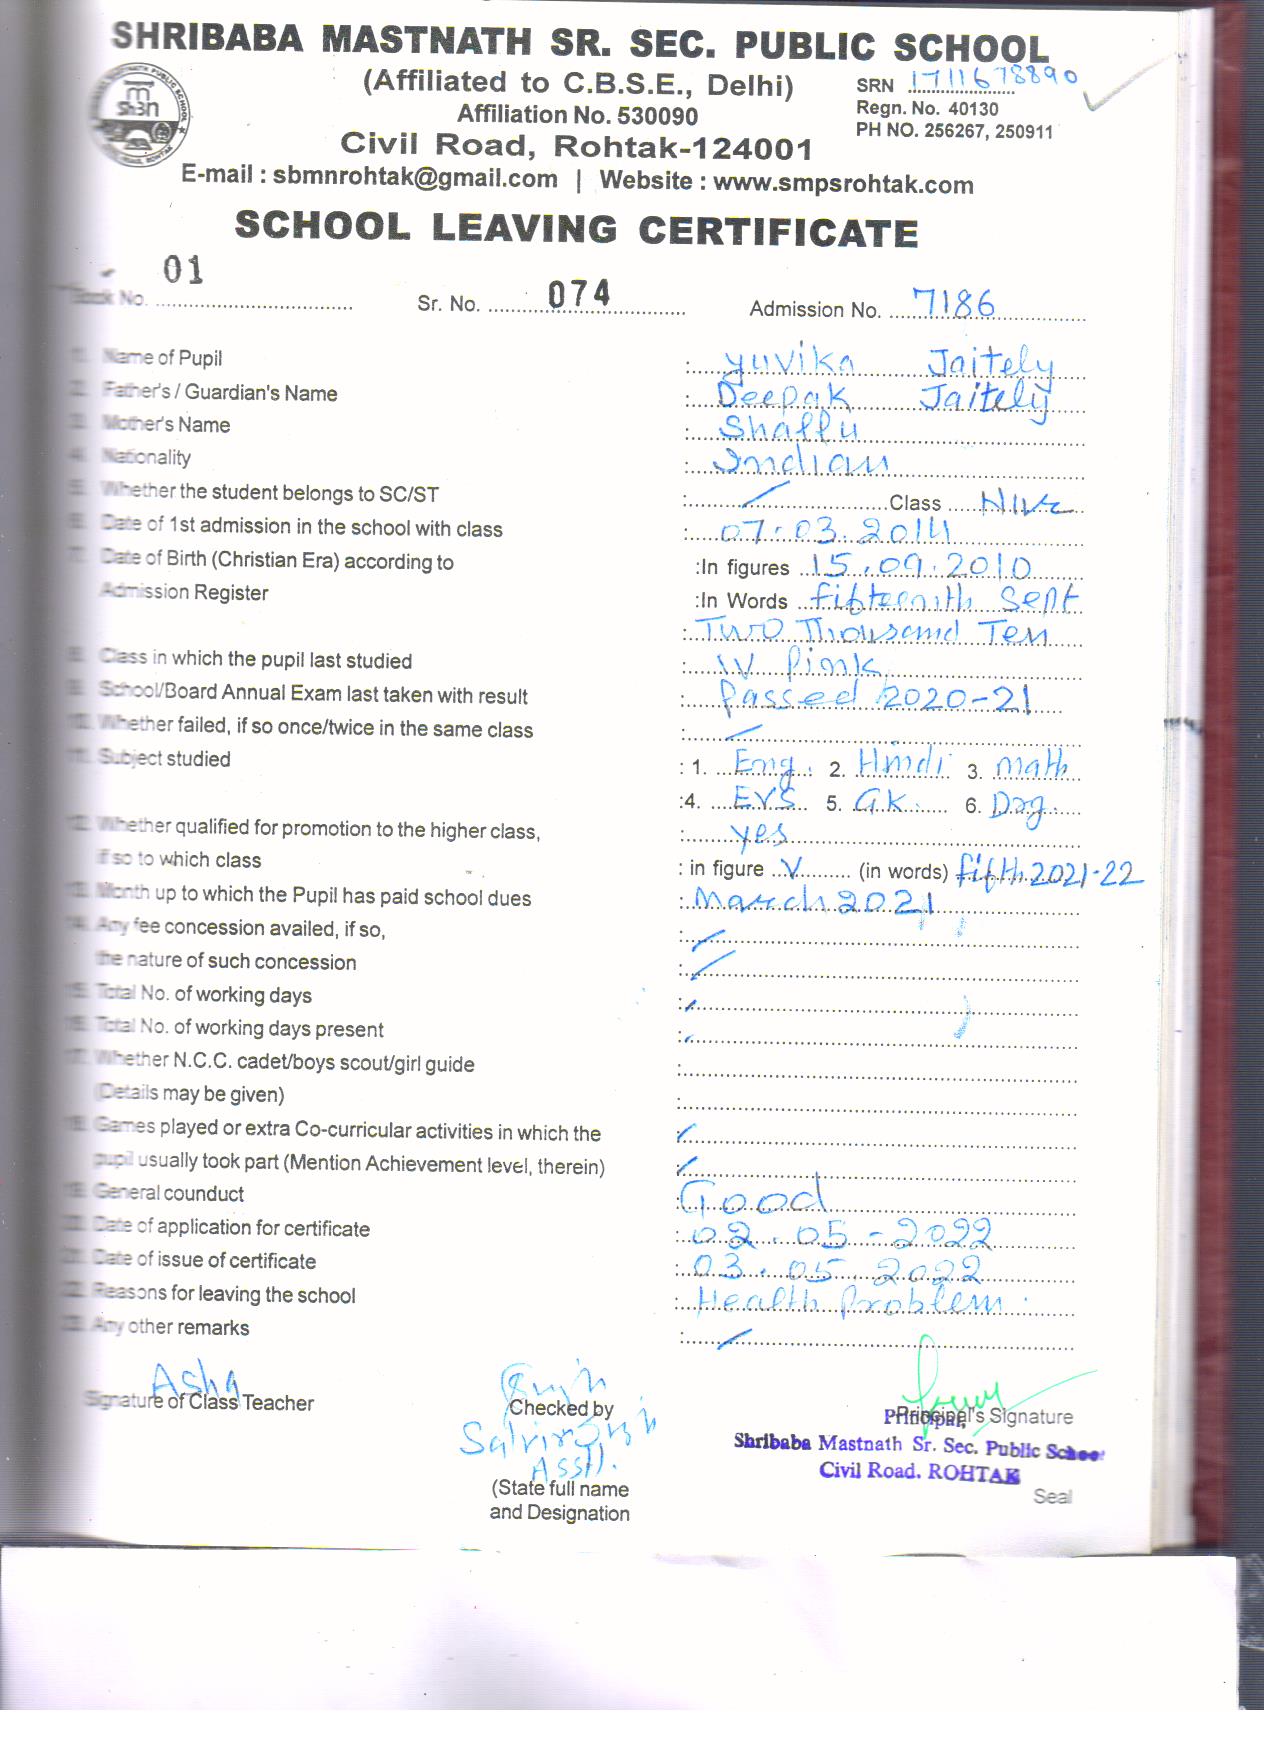 SHRIBABA MASTNATH SR. SEC. PUBLIC SCHOOL
(Affiliated to C.B.S.E., Delhi)
SRN 1711678890
Affiliation No. 530090
Regn. No. 40130
Civil Road, Rohtak-124001
PH NO. 256267, 250911
E-mail : sbmnrohtak@gmail.com | Website : www.smpsrohtak.com
SCHOOL LEAVING CERTIFICATE
Book No. 01 Sr. No. 074 Admission No. 7186
1. Name of Pupil : Yuvika Jaitely
2. Father's / Guardian's Name : Deepak Jaitely
3. Mother's Name : Shallu
4. Nationality : Indian
5. Whether the student belongs to SC/ST : / Class Nur
6. Date of 1st admission in the school with class : 07.03.2014
7. Date of Birth (Christian Era) according to :In figures 15.09.2010
Admission Register :In Words fifteenth Sept
: Two Thousand Ten
8. Class in which the pupil last studied : IV Pink
9. School/Board Annual Exam last taken with result : Passed 2020-21
10. Whether failed, if so once/twice in the same class : /
11. Subject studied : 1. Eng. 2. Hindi 3. Math
:4. EVS 5. G.K. 6. Drg.
12. Whether qualified for promotion to the higher class, : yes
if so to which class : in figure V (in words) fifth 2021-22
13. Month up to which the Pupil has paid school dues : March 2021
14. Any fee concession availed, if so, : /
the nature of such concession : /
15. Total No. of working days : /
16. Total No. of working days present :
17. Whether N.C.C. cadet/boys scout/girl guide :
(Details may be given) :
18. Games played or extra Co-curricular activities in which the : /
pupil usually took part (Mention Achievement level, therein) : /
19. General counduct : Good
20. Date of application for certificate : 02.05-2022
21. Date of issue of certificate : 03.05.2022
22. Reasons for leaving the school : Health Problem.
23. Any other remarks : /
Asha
Signature of Class Teacher
Checked by
Asstt.
(State full name
and Designation
Principal's Signature
Principal,
Shribaba Mastnath Sr. Sec. Public School
Civil Road. ROHTAK
Seal